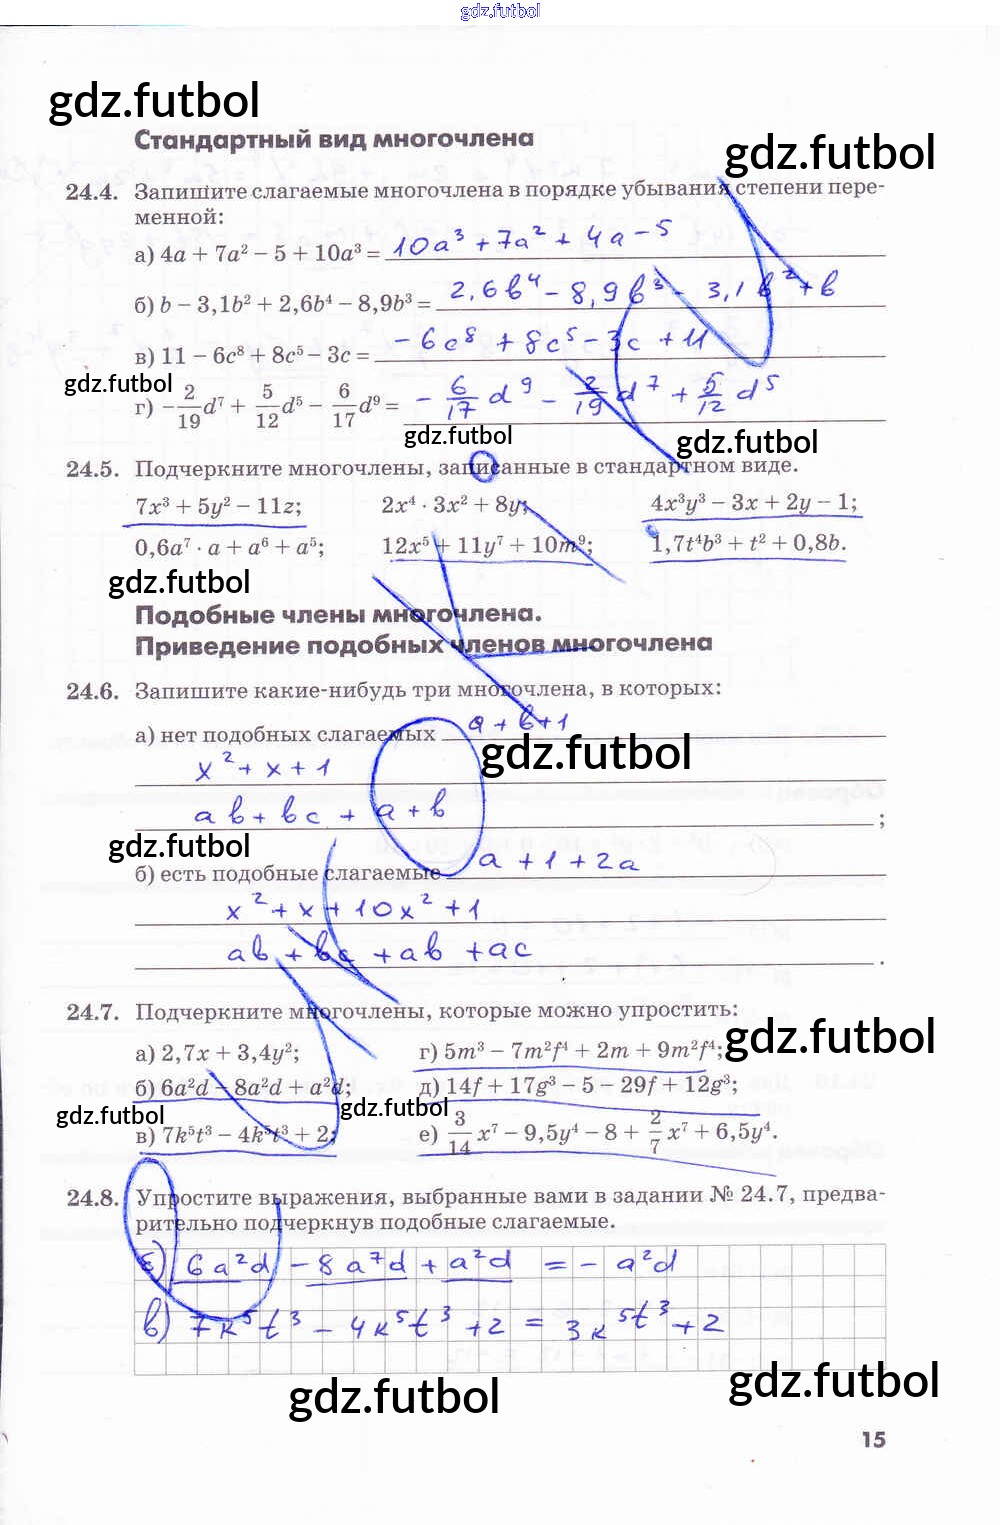 gdz.futbol
gdz.futbol
Стандартный вид многочлена
gdz.futbol
24.4. Запишите слагаемые многочлена в порядке убывания степени пере-
менной:
а) 4a + 7a² − 5 + 10a³ = 10a³ + 7a² + 4a − 5
б) b − 3,1b² + 2,6b⁴ − 8,9b³ = 2,6b⁴ − 8,9b³ − 3,1b² + b
в) 11 − 6c⁸ + 8c⁵ − 3c = − 6c⁸ + 8c⁵ − 3c + 11
gdz.futbol
г) −2/19 d⁷ + 5/12 d⁵ − 6/17 d⁹ = − 6/17 d⁹ − 2/19 d⁷ + 5/12 d⁵
gdz.futbol gdz.futbol
24.5. Подчеркните многочлены, записанные в стандартном виде.
7x³ + 5y² − 11z; 2x⁴ · 3x² + 8y; 4x³y³ − 3x + 2y − 1;
0,6a⁷ · a + a⁶ + a⁵; 12x⁵ + 11y⁷ + 10m⁹; 1,7t⁴b³ + t² + 0,8b.
gdz.futbol
Подобные члены многочлена.
Приведение подобных членов многочлена
24.6. Запишите какие-нибудь три многочлена, в которых:
а) нет подобных слагаемых a + b + 1
gdz.futbol
x² + x + 1
ab + bc + a + b ;
gdz.futbol
б) есть подобные слагаемые a + 1 + 2a
x² + x + 10x² + 1
ab + bc + ab + ac .
24.7. Подчеркните многочлены, которые можно упростить:
gdz.futbol
а) 2,7x + 3,4y²; г) 5m³ − 7m²f⁴ + 2m + 9m²f⁴;
б) 6a²d − 8a²d + a²d; д) 14f + 17g³ − 5 − 29f + 12g³;
gdz.futbol gdz.futbol
в) 7k⁵t³ − 4k⁵t³ + 2; е) 3/14 x⁷ − 9,5y⁴ − 8 + 2/7 x⁷ + 6,5y⁴.
24.8. Упростите выражения, выбранные вами в задании № 24.7, предва-
рительно подчеркнув подобные слагаемые.
б) 6a²d − 8a²d + a²d = − a²d
в) 7k⁵t³ − 4k⁵t³ + 2 = 3k⁵t³ + 2
gdz.futbol gdz.futbol
15